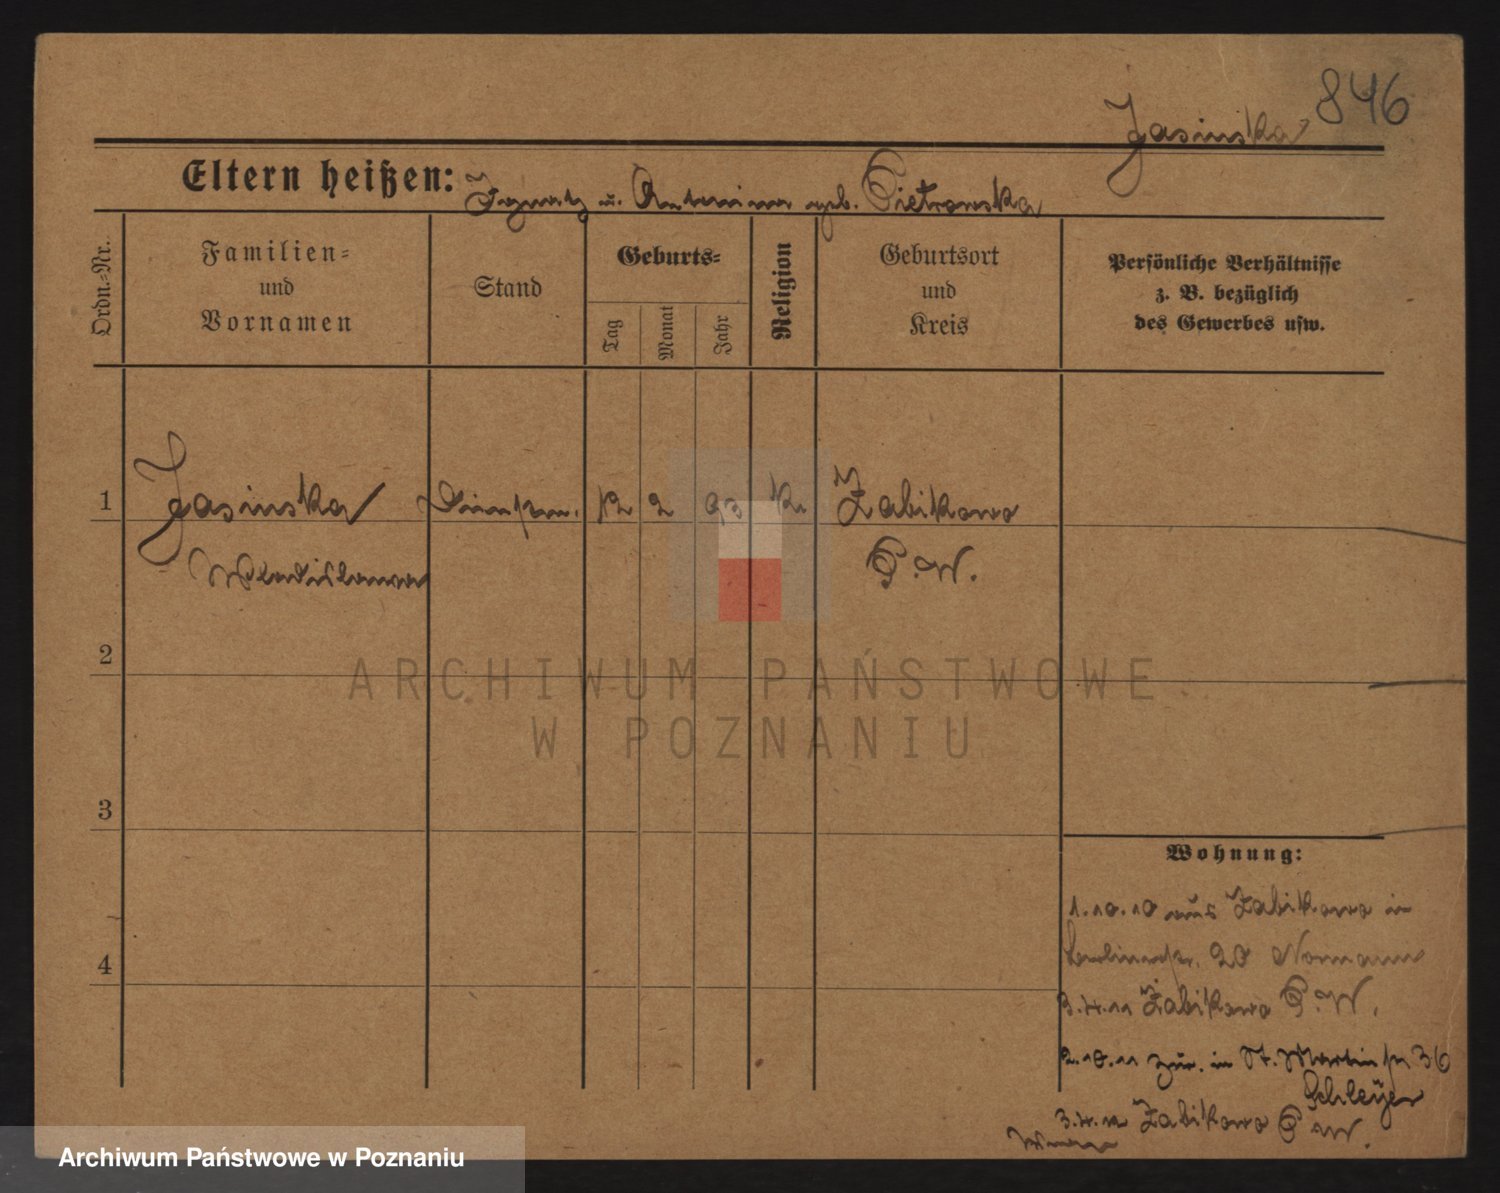 846
Jasinska
Eltern heißen: Ignatz u. Antonina geb. Pietrowska
Ordn.-Nr.
Familien-
und
Vornamen
Stand
Geburts-
Tag
Monat
Jahr
Religion
Geburtsort
und
Kreis
Persönliche Verhältnisse
z. B. bezüglich
des Gewerbes usw.
1
Jasinska
2 93 K. Zabikowo
Wladislawa
P. W.
2
ARCHIWUM PAŃSTWOWE
W POZNANIU
3
Wohnung:
1.10.10 aus Zabikowo in
Berlinerstr. 20 Normann
3.4.11 Zabikowo P. W.
2.10.11 zur. in St. Martinstr 36
Schleyer
3.4.12 Zabikowo P. W.
4
Archiwum Państwowe w Poznaniu